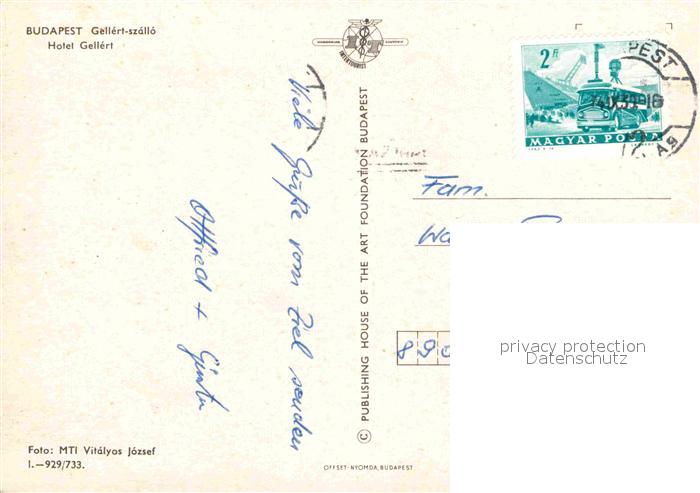 BUDAPEST Gellért-szálló
Hotel Gellért
INTERTOURIST
2 Ft
MAGYAR POSTA
Viele Grüße vom Ziel senden
Ottfried + Günter
Fam.
© PUBLISHING HOUSE OF THE ART FOUNDATION BUDAPEST
privacy protection
Datenschutz
Foto: MTI Vitályos József
I.—929/733.
OFFSET-NYOMDA, BUDAPEST